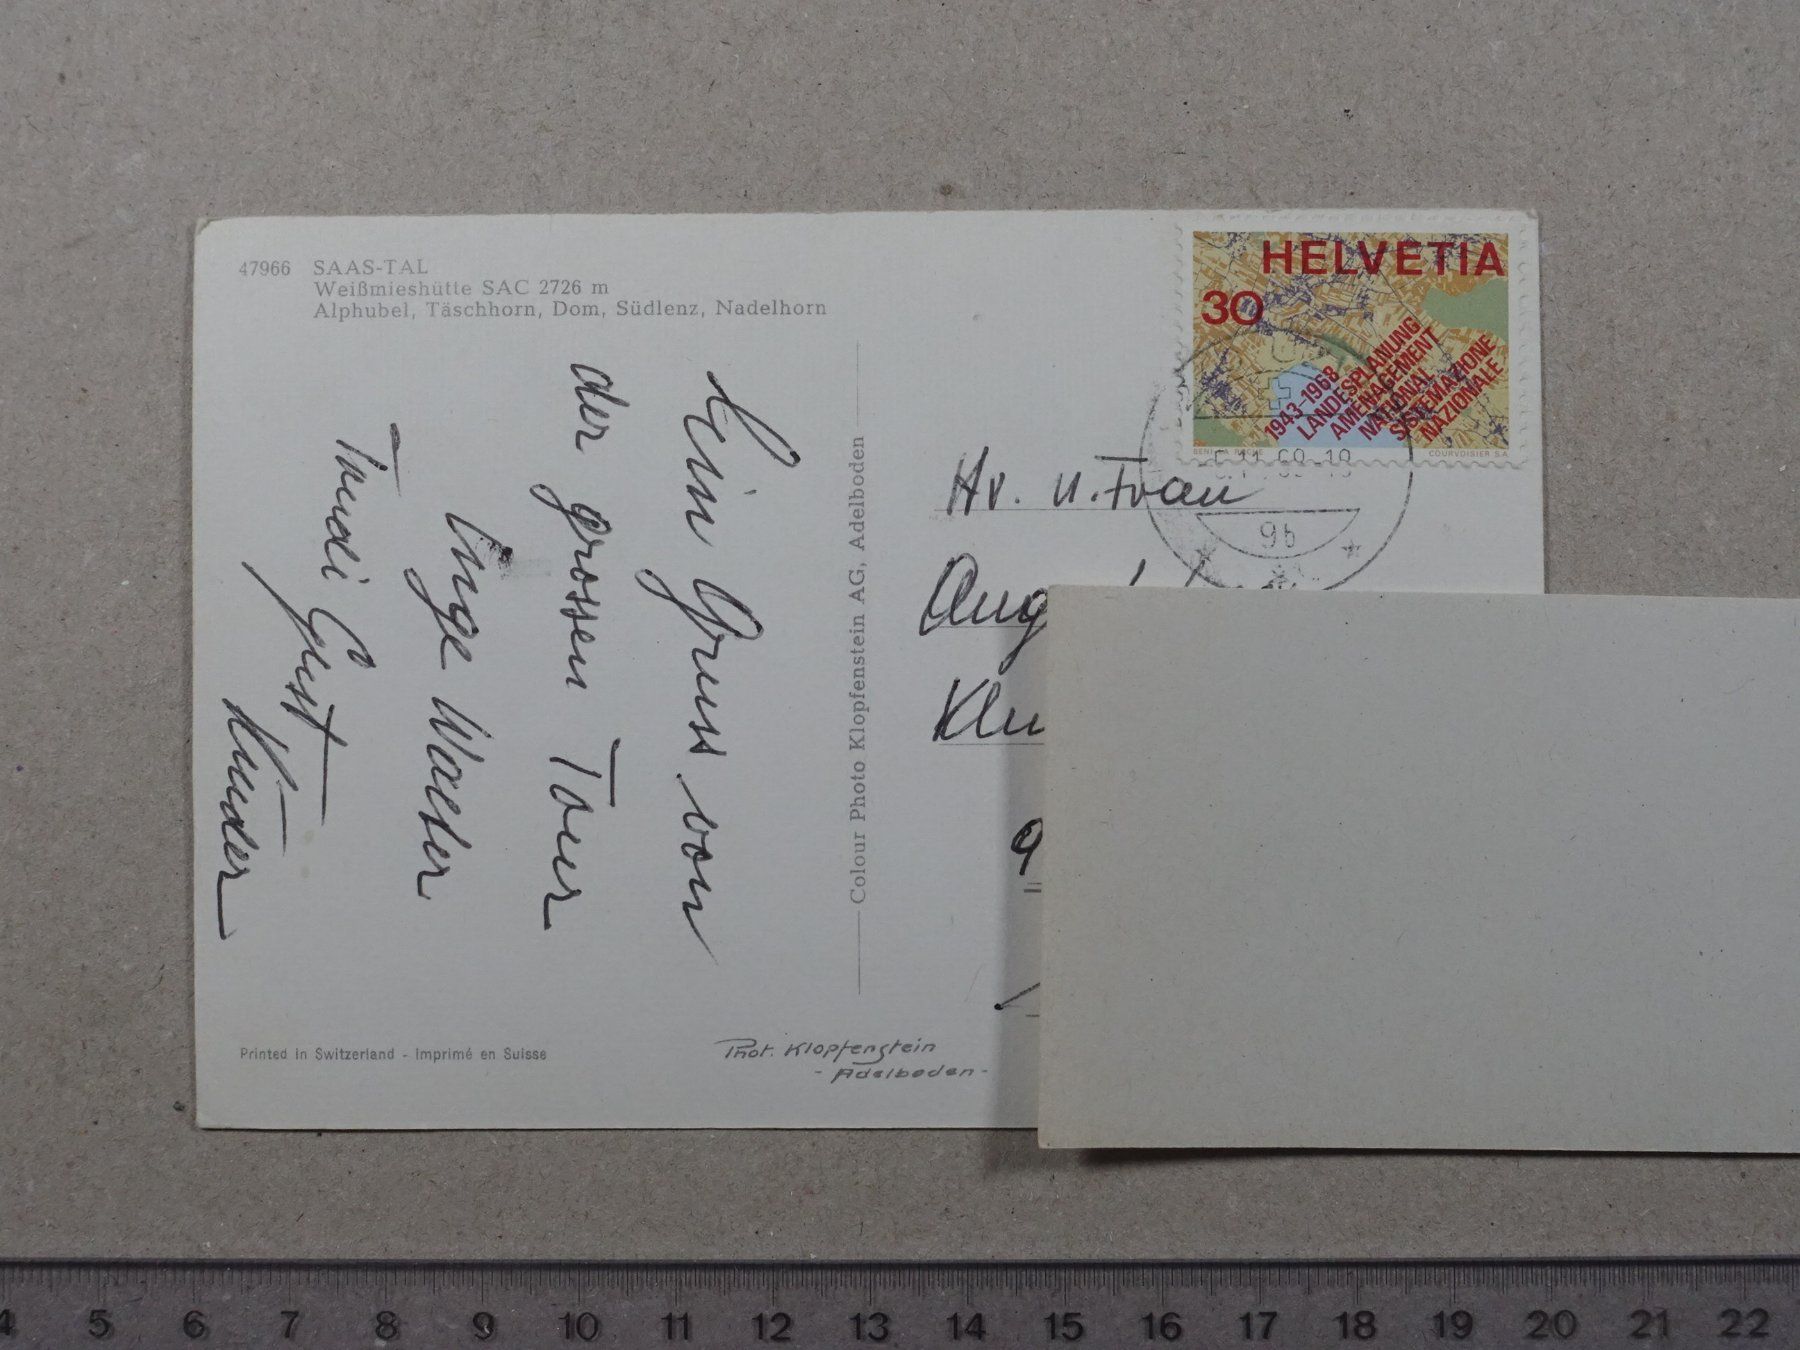 47966 SAAS-TAL
Weißmieshütte SAC 2726 m
Alphubel, Täschhorn, Dom, Südlenz, Nadelhorn
Ein Gruss von
der grossen Tour
Inge Walter
Trudi Gust
Künder
Colour Photo Klopfenstein AG, Adelboden
Printed in Switzerland - Imprimé en Suisse
Phot. Klopfenstein
- Adelboden -
HELVETIA
30
1943-1968
LANDESPLANUNG
AMENAGEMENT
NATIONAL
SISTEMAZIONE
NAZIONALE
COURVOISIER S.A
9b
Hr. u. Frau
4 5 6 7 8 9 10 11 12 13 14 15 16 17 18 19 20 21 22